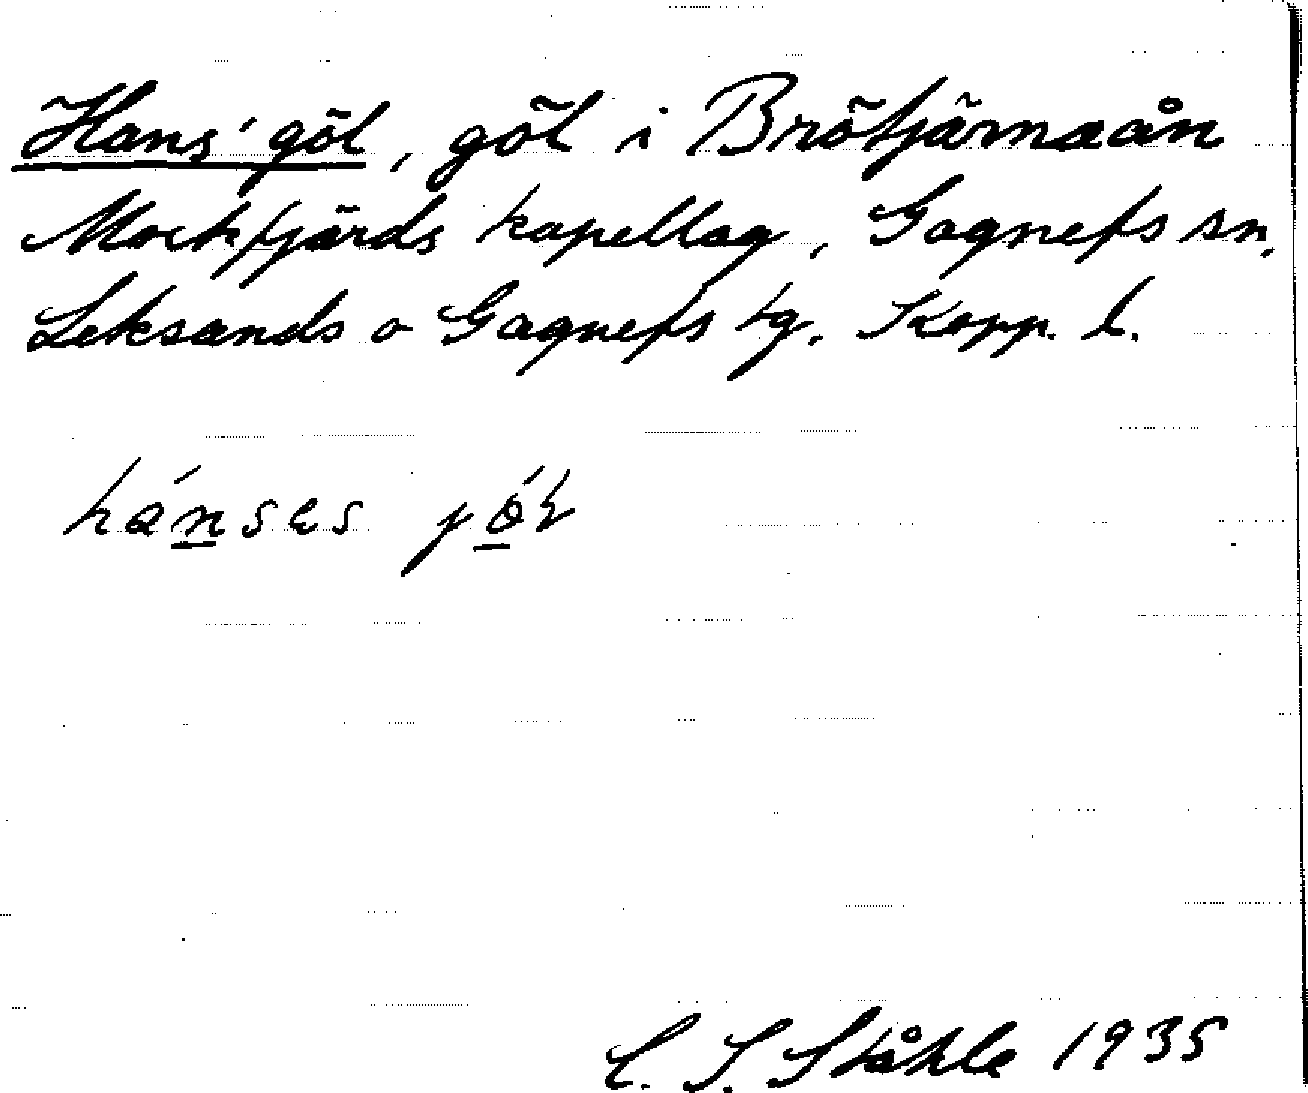 Hans' göl, göl i Brötjärnaån
Mockfjärds kapellag, Gagnefs sn,
Leksands o Gagnefs tg. Kopp. l.
C. I. Ståhle 1935